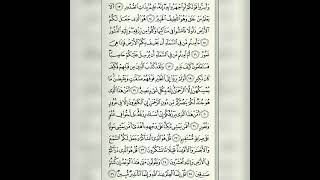 وَأَسِرُّوا۟ قَوْلَكُمْ أَوِ ٱجْهَرُوا۟ بِهِۦٓ إِنَّهُۥ عَلِيمٌۢ بِذَاتِ ٱلصُّدُورِ ١٣ أَلَا
يَعْلَمُ مَنْ خَلَقَ وَهُوَ ٱللَّطِيفُ ٱلْخَبِيرُ ١٤ هُوَ ٱلَّذِى جَعَلَ لَكُمُ
ٱلْأَرْضَ ذَلُولًا فَٱمْشُوا۟ فِى مَنَاكِبِهَا وَكُلُوا۟ مِن رِّزْقِهِۦ وَإِلَيْهِ ٱلنُّشُورُ
١٥ ءَأَمِنتُم مَّن فِى ٱلسَّمَآءِ أَن يَخْسِفَ بِكُمُ ٱلْأَرْضَ فَإِذَا هِىَ
تَمُورُ ١٦ أَمْ أَمِنتُم مَّن فِى ٱلسَّمَآءِ أَن يُرْسِلَ عَلَيْكُمْ حَاصِبًا
فَسَتَعْلَمُونَ كَيْفَ نَذِيرِ ١٧ وَلَقَدْ كَذَّبَ ٱلَّذِينَ مِن قَبْلِهِمْ فَكَيْفَ
كَانَ نَكِيرِ ١٨ أَوَلَمْ يَرَوْا۟ إِلَى ٱلطَّيْرِ فَوْقَهُمْ صَٰٓفَّٰتٍ وَيَقْبِضْنَ مَا
يُمْسِكُهُنَّ إِلَّا ٱلرَّحْمَٰنُ إِنَّهُۥ بِكُلِّ شَىْءٍۭ بَصِيرٌ ١٩ أَمَّنْ هَٰذَا ٱلَّذِى
هُوَ جُندٌ لَّكُمْ يَنصُرُكُم مِّن دُونِ ٱلرَّحْمَٰنِ إِنِ ٱلْكَٰفِرُونَ إِلَّا فِى غُرُورٍ
٢٠ أَمَّنْ هَٰذَا ٱلَّذِى يَرْزُقُكُمْ إِنْ أَمْسَكَ رِزْقَهُۥ بَل لَّجُّوا۟ فِى عُتُوٍّ
وَنُفُورٍ ٢١ أَفَمَن يَمْشِى مُكِبًّا عَلَىٰ وَجْهِهِۦٓ أَهْدَىٰٓ أَمَّن يَمْشِى سَوِيًّا
عَلَىٰ صِرَٰطٍ مُّسْتَقِيمٍ ٢٢ قُلْ هُوَ ٱلَّذِىٓ أَنشَأَكُمْ وَجَعَلَ لَكُمُ ٱلسَّمْعَ
وَٱلْأَبْصَٰرَ وَٱلْأَفْـِٔدَةَ قَلِيلًا مَّا تَشْكُرُونَ ٢٣ قُلْ هُوَ ٱلَّذِى ذَرَأَكُمْ
فِى ٱلْأَرْضِ وَإِلَيْهِ تُحْشَرُونَ ٢٤ وَيَقُولُونَ مَتَىٰ هَٰذَا ٱلْوَعْدُ إِن كُنتُمْ
صَٰدِقِينَ ٢٥ قُلْ إِنَّمَا ٱلْعِلْمُ عِندَ ٱللَّهِ وَإِنَّمَآ أَنَا۠ نَذِيرٌ مُّبِينٌ ٢٦